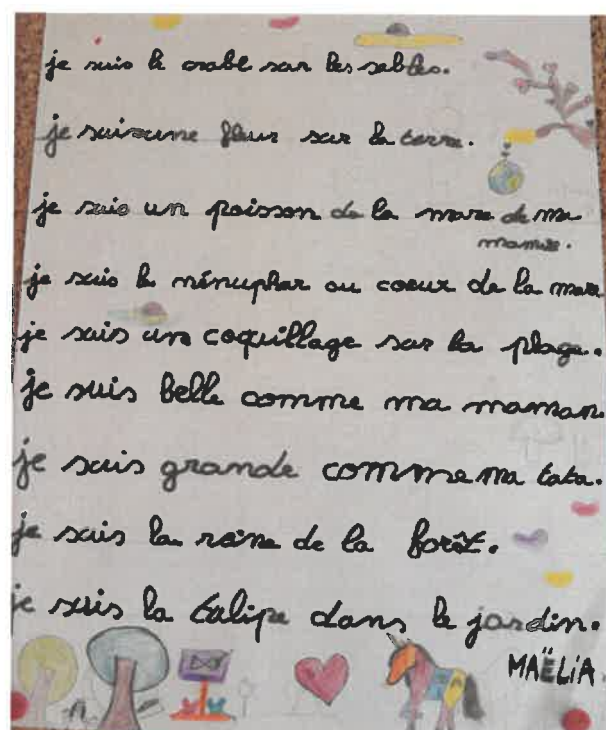 je suis le crabe sur les sables.
je suis une fleur sur la terre.
je suis un poisson de la mare de ma
mamie.
je suis le nénuphar au coeur de la mare
je suis un coquillage sur la plage.
je suis belle comme ma maman.
je suis grande comme ma tata.
je suis la reine de la forêt.
je suis la tulipe dans le jardin.
MAËLiA.